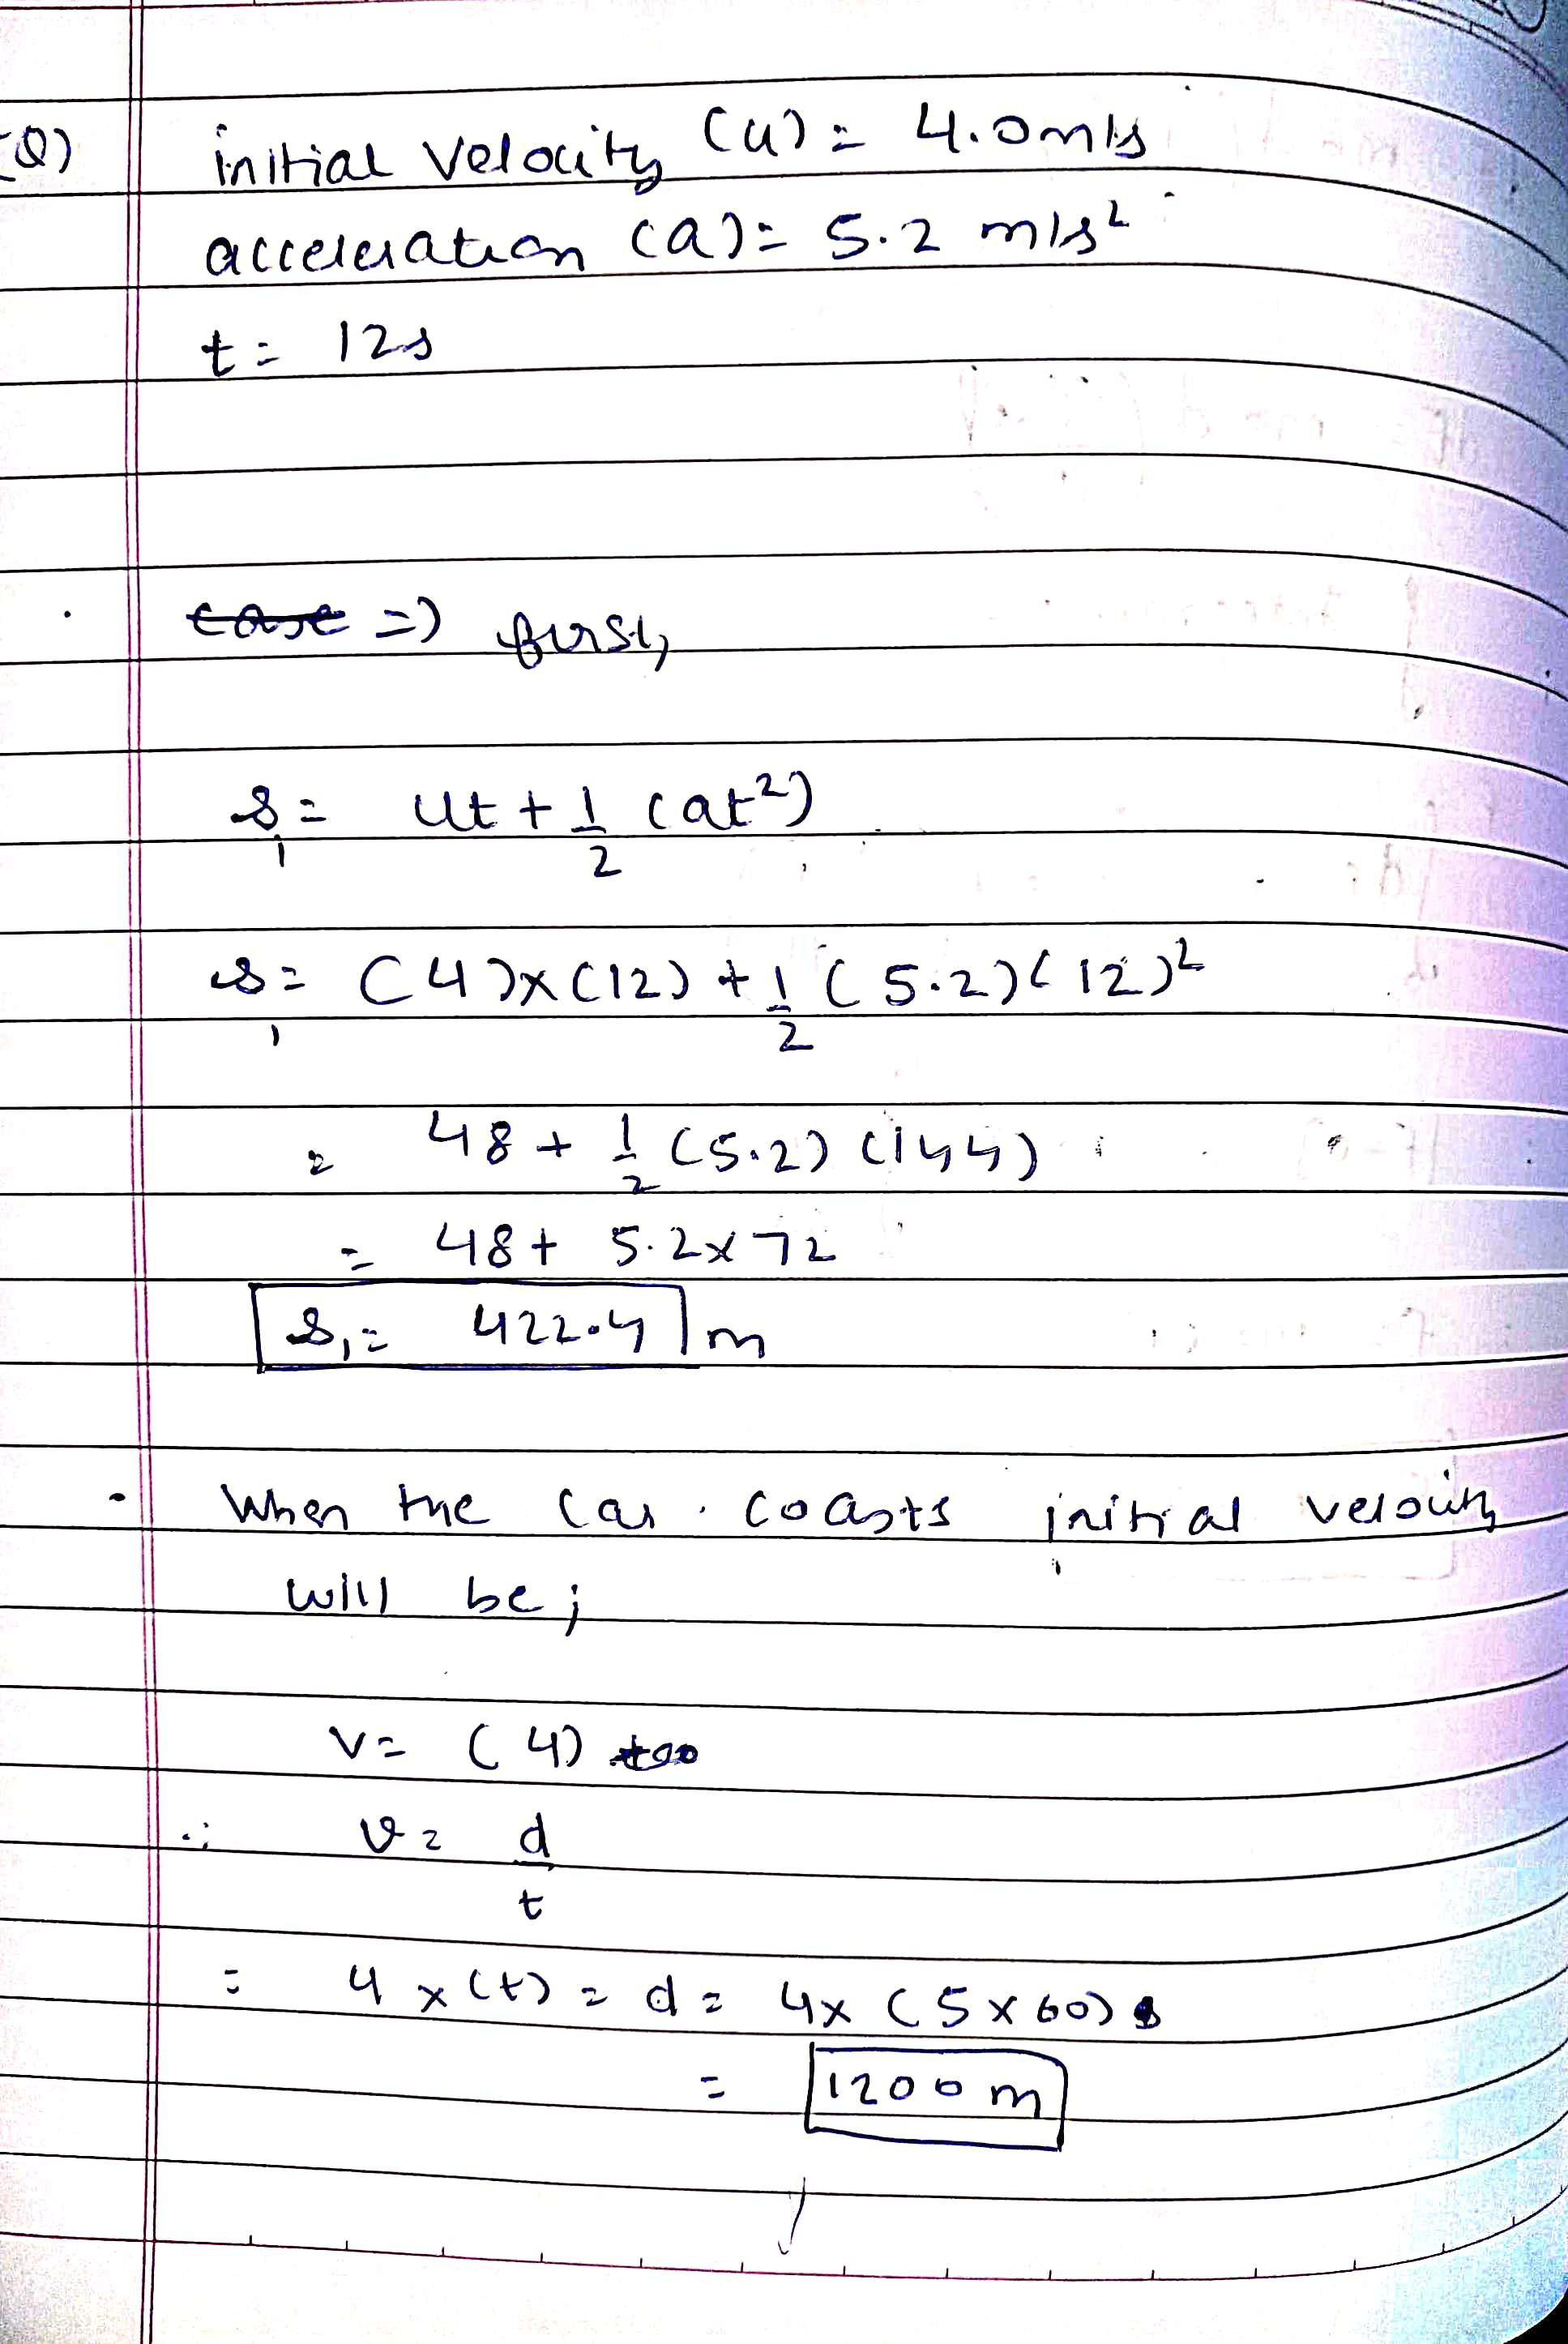 Q) initial velocity (u) = 4.0 m/s
acceleration (a) = 5.2 m/s²
t = 12s
case => first,
s₁ = ut + 1/2 (at²)
s₁ = (4)x(12) + 1/2 (5.2)(12)²
= 48 + 1/2 (5.2) (144)
= 48 + 5.2x72
s₁ = 422.4 m
• When the car coasts initial velocity
will be;
v = (4)
∴ v = d/t
= 4 x (t) = d = 4x (5x60)
= 1200 m